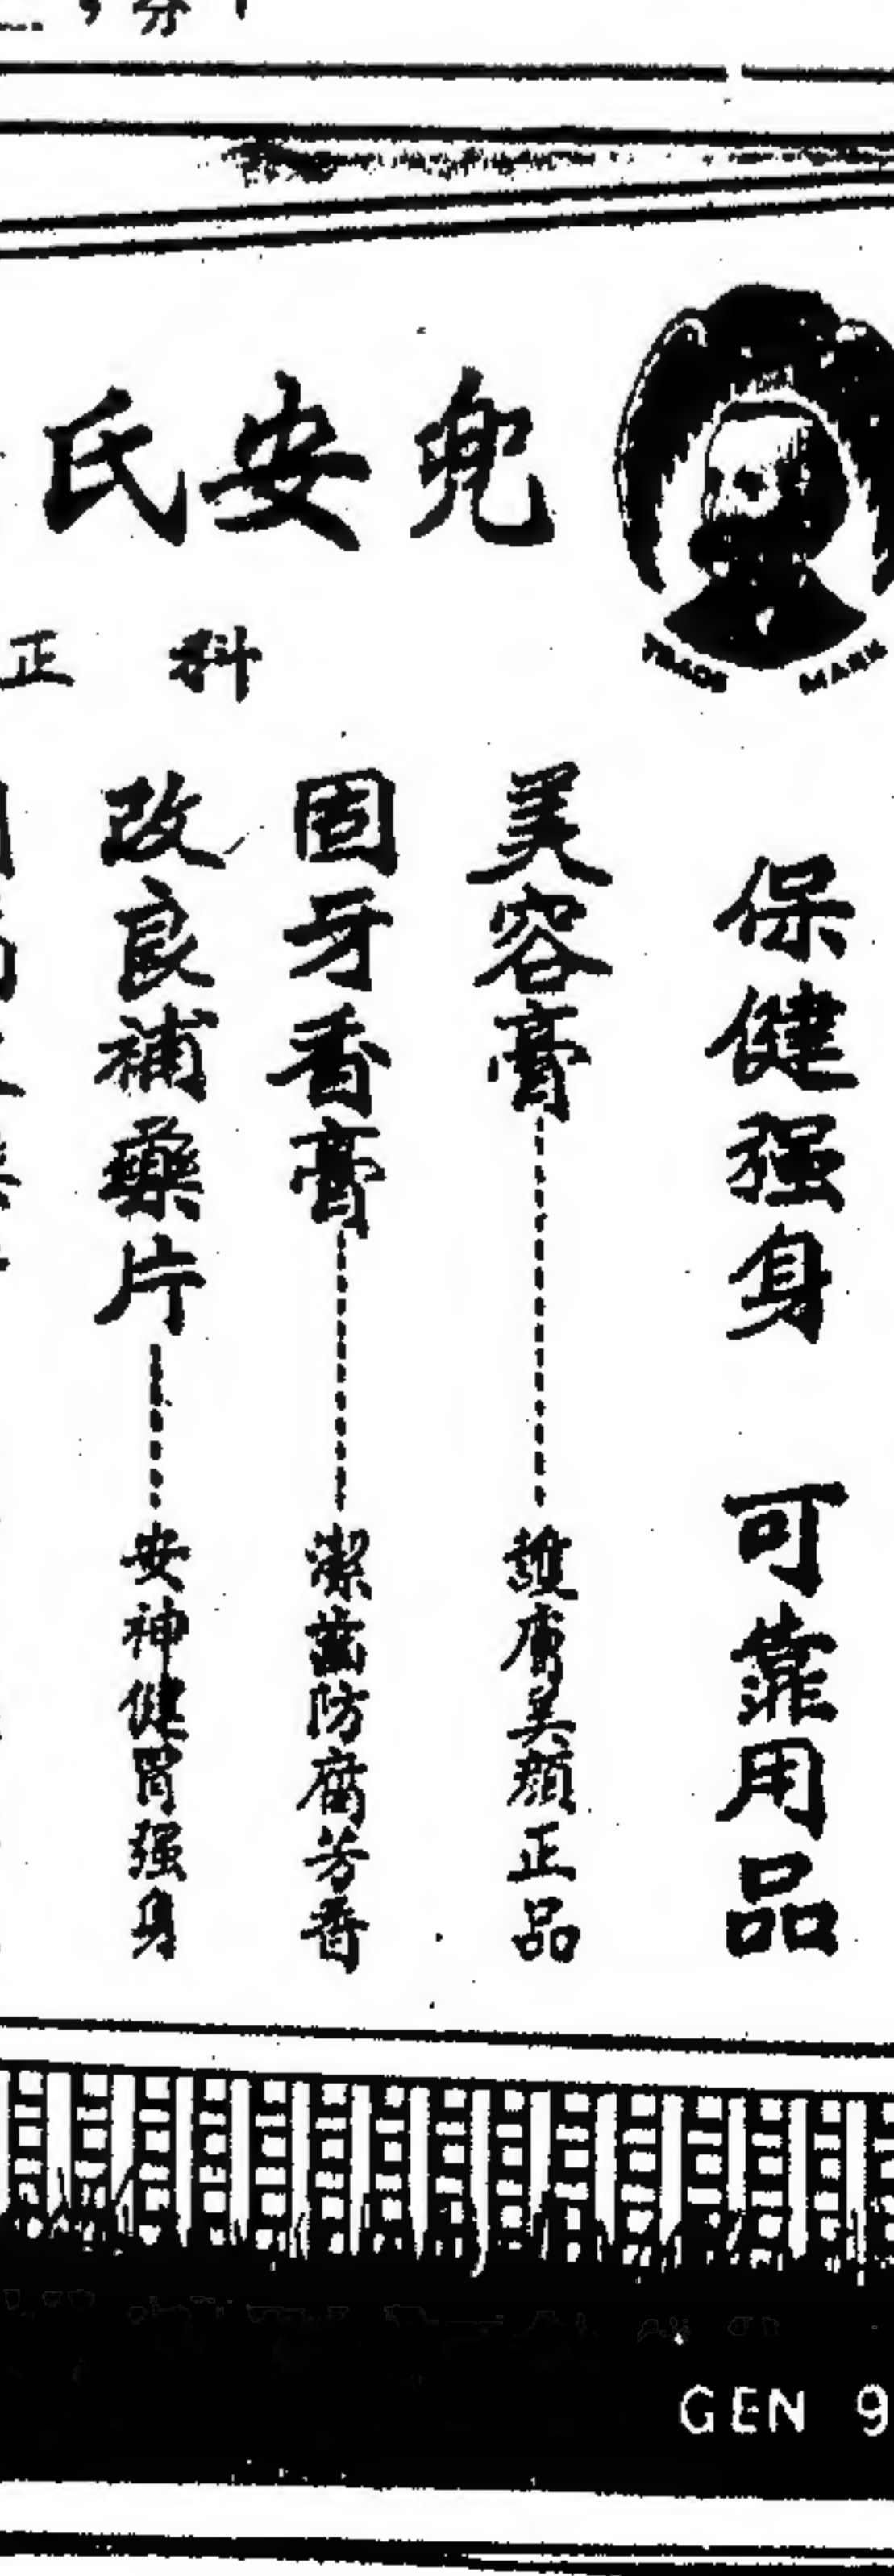 兜安氏
TRADE MARK
科 正
保健强身 可靠用品
美容膏 護膚美顏正品
固牙香膏 潔齒防腐芳香
改良補藥片 安神健胃强身
GEN 9